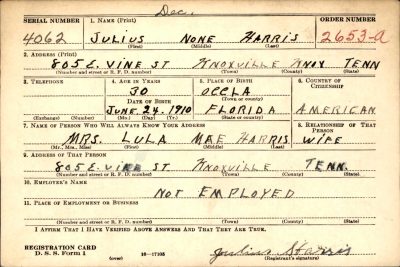 Dec.
SERIAL NUMBER 1. NAME (Print) ORDER NUMBER
4062 JULIUS NONE HARRIS 2653-a
(First) (Middle) (Last)
2. ADDRESS (Print)
805 E. VINE ST KNOXVILLE KNOX TENN
(Number and street or R. F. D. number) (Town) (County) (State)
3. TELEPHONE 4. AGE IN YEARS 5. PLACE OF BIRTH 6. COUNTRY OF CITIZENSHIP
30 OCCLA
DATE OF BIRTH (Town or county)
JUNE 24, 1910 FLORIDA AMERICAN
(Exchange) (Number) (Mo.) (Day) (Yr.) (State or country)
7. NAME OF PERSON WHO WILL ALWAYS KNOW YOUR ADDRESS 8. RELATIONSHIP OF THAT PERSON
MRS. LULA MAE HARRIS WIFE
(Mr., Mrs., Miss) (First) (Middle) (Last)
9. ADDRESS OF THAT PERSON
805 E. VINE ST KNOXVILLE TENN.
(Number and street or R. F. D. number) (Town) (County) (State)
10. EMPLOYER'S NAME
NOT EMPLOYED
11. PLACE OF EMPLOYMENT OR BUSINESS
(Number and street or R. F. D. number) (Town) (County) (State)
I AFFIRM THAT I HAVE VERIFIED ABOVE ANSWERS AND THAT THEY ARE TRUE.
REGISTRATION CARD
D. S. S. Form 1 (over) 16—17105 (Registrant's signature)